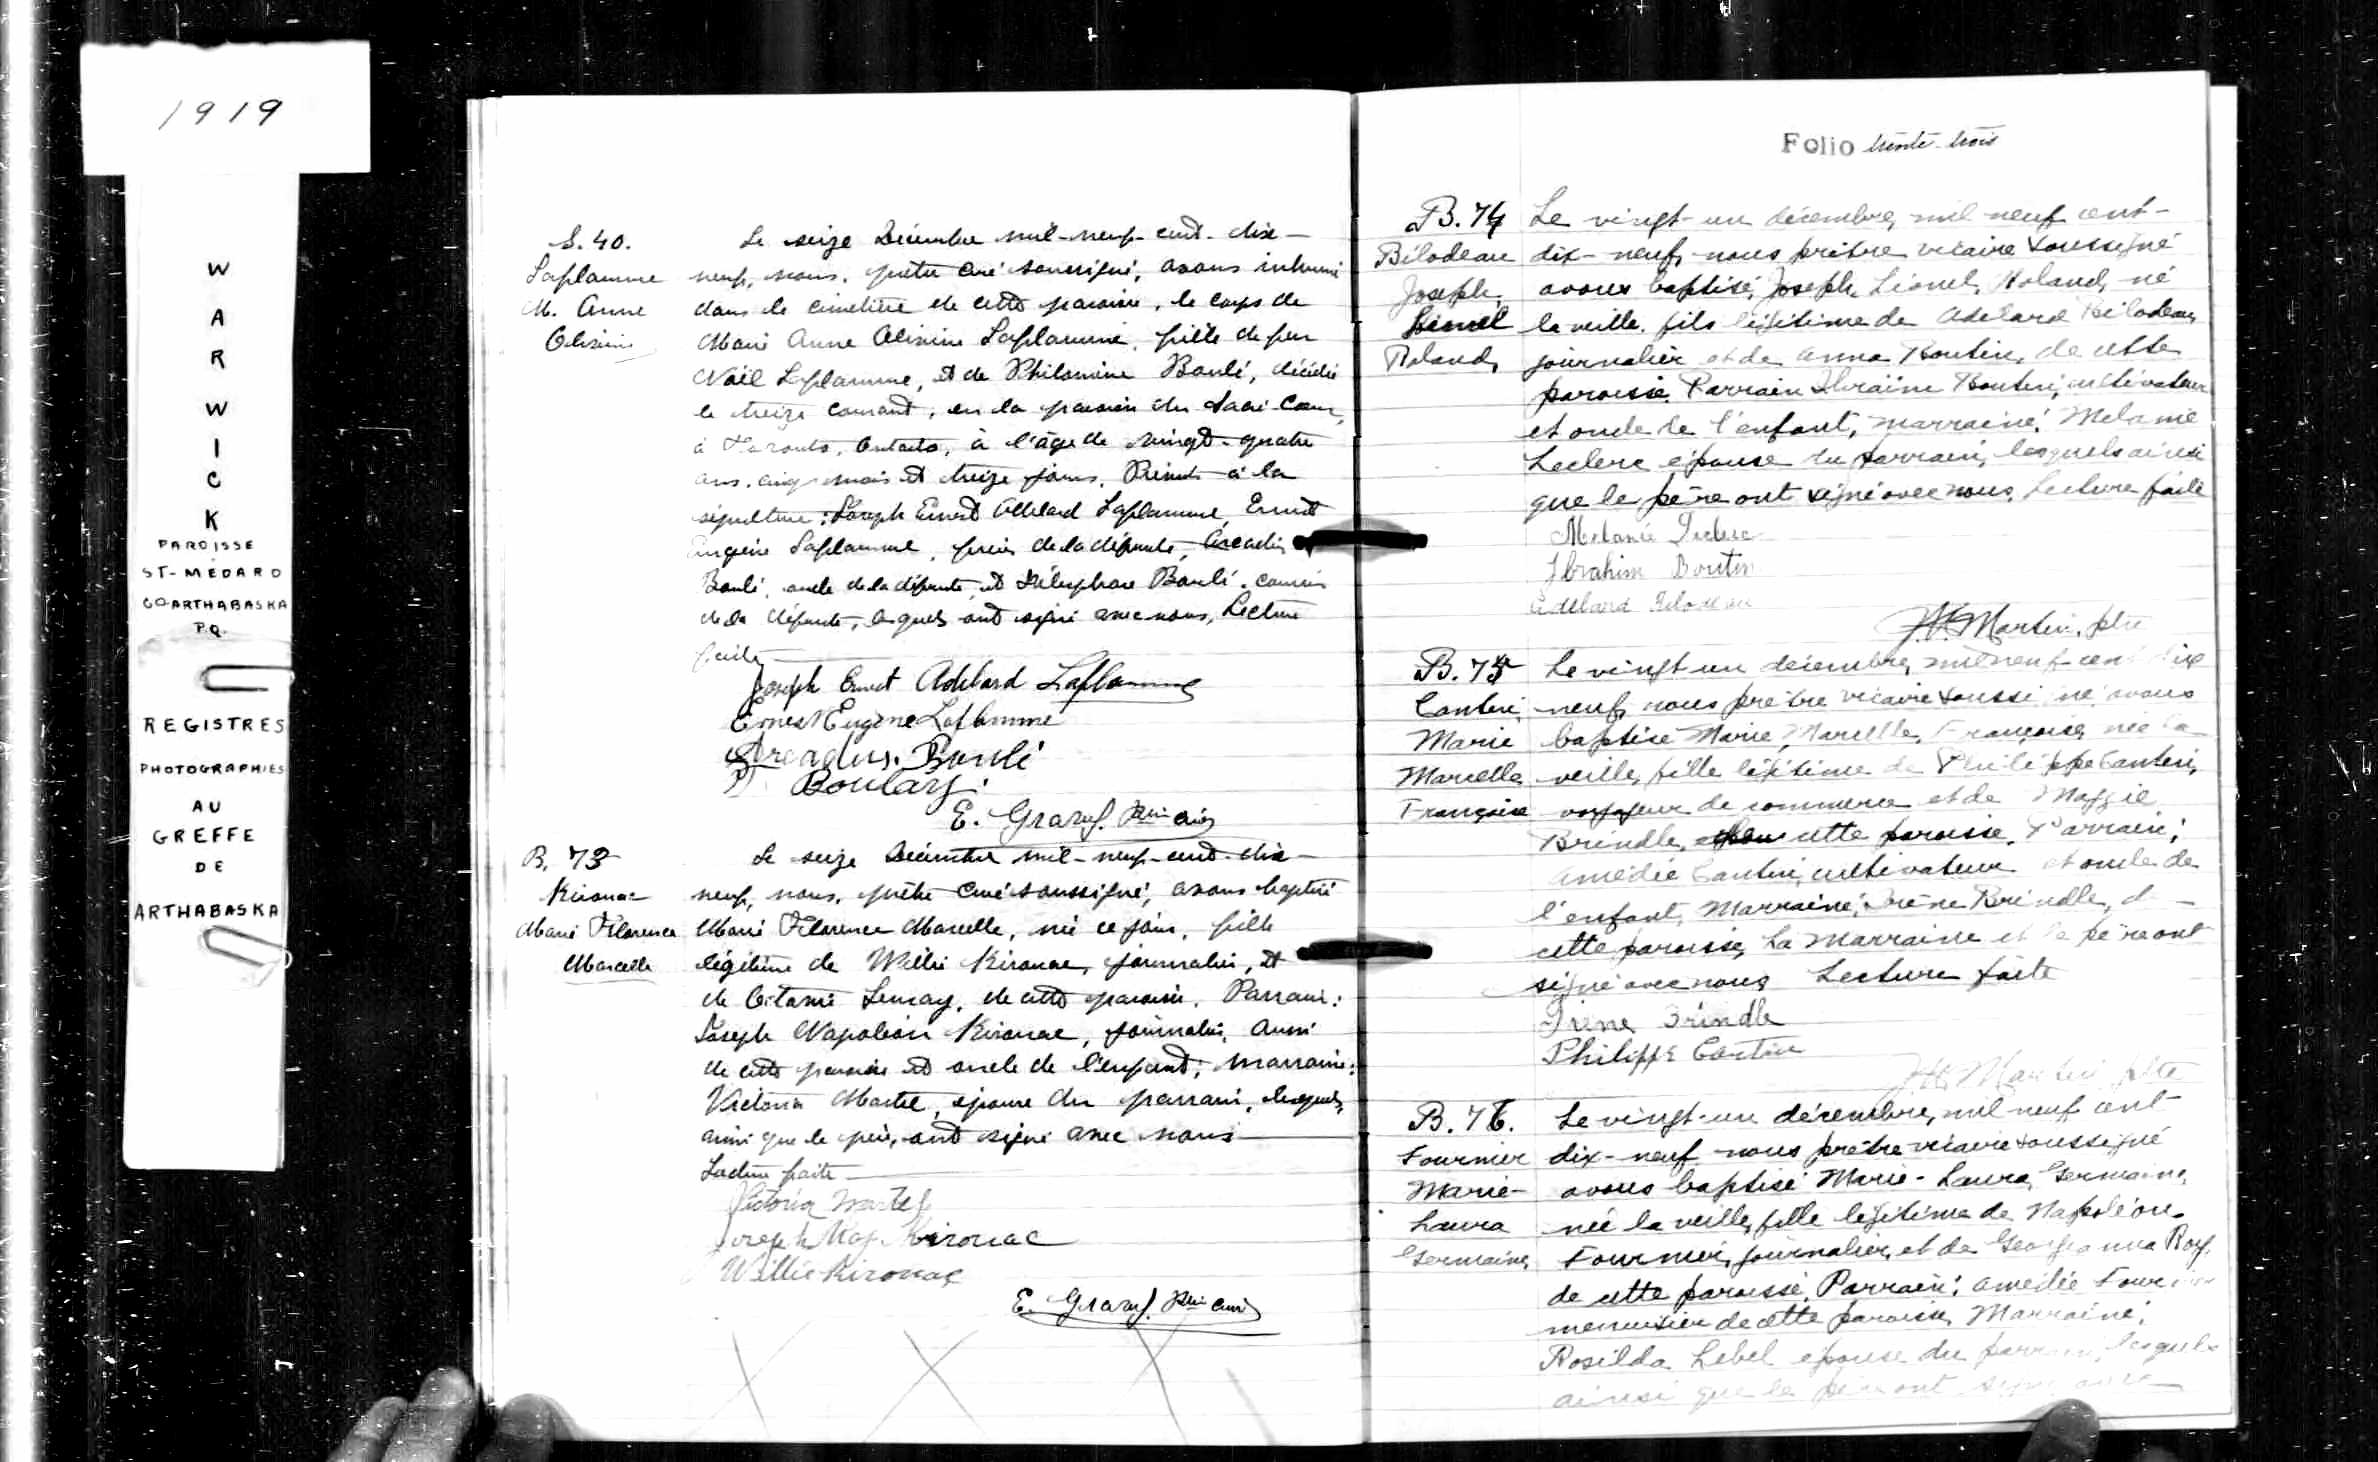 1919
WARWICK
PAROISSE
ST-MÉDARD
CO ARTHABASKA
P.Q.
REGISTRES
PHOTOGRAPHIES
AU
GREFFE
DE
ARTHABASKA
S. 40.
Laflamme
M. Anne
Le seize Décembre mil-neuf-cent-dix-
neuf, nous, prêtre curé soussigné, avons inhumé
dans le cimetière de cette paroisse, le corps de
Marie Anne Laflamme, fille de feu
Noël Laflamme, et de Philomène Baulé, décédée
le treize courant, en la paroisse du Sacré-Cœur,
à Toronto, Ontario, à l'âge de vingt-quatre
ans, cinq mois et treize jours. Présents à la
sépulture: Joseph Ernest Adélard Laflamme, Ernest
Eugène Laflamme, frères de la défunte, Arcadius
Baulé, oncle de la défunte, et Télesphore Baulé, cousin
de la défunte, lesquels ont signé avec nous, Lecture
faite
Joseph Ernest Adelard Laflamme
Ernest Eugene Laflamme
Arcadius Baulé
Boulay
E. Gravel Ptre curé
B. 73
Kirouac
Marie Florence
Marcelle
Le seize Décembre mil-neuf-cent-dix-
neuf, nous, prêtre curé soussigné, avons baptisé
Marie Florence Marcelle, née ce jour, fille
légitime de Willie Kirouac, journalier, et
de Octavie Lemay, de cette paroisse. Parrain:
Joseph Napoléon Kirouac, journalier, aussi
de cette paroisse et oncle de l'enfant; marraine:
Victoria Martel, épouse du parrain, lesquels,
ainsi que le père, ont signé avec nous
Lecture faite
Victoria Martel
Joseph Nap. Kirouac
Willie Kirouac
E. Gravel Ptre curé
Folio trente-trois
B. 74
Bilodeau
Joseph,
Lionel
Roland,
Le vingt-un décembre, mil neuf cent-
dix-neuf, nous prêtre vicaire soussigné
avons baptisé, Joseph, Lionel, Roland, né
la veille, fils légitime de Adelard Bilodeau,
journalier et de Anna Boutin, de cette
paroisse. Parrain Boutin, cultivateur
et oncle de l'enfant, marraine: Melanie
Leclerc épouse du parrain, lesquels ainsi
que le père ont signé avec nous, Lecture faite
Melanie Leclerc
Ibrahim Boutin
Adelard Bilodeau
Martin, ptre
B. 75
Cantin,
Marie
Marcelle
Françoise
Le vingt-un décembre, mil neuf-cent dix
neuf, nous prêtre vicaire soussigné avons
baptisé Marie, Marcelle, Françoise, née la
veille, fille légitime de Philippe Cantin,
voyageur de commerce et de Maggie
Brindle, cette paroisse. Parrain:
Amédée Cantin, cultivateur et oncle de
l'enfant, Marraine: Irène Brindle, de
cette paroisse, La Marraine et le père ont
signé avec nous Lecture faite
Irene Brindle
Philippe Cantin
Martin ptre
B. 76.
Fournier
Marie-
Laura
Germaine,
Le vingt-un décembre, mil neuf cent-
dix-neuf nous prêtre vicaire soussigné
avons baptisé Marie-Laura, Germaine,
née la veille, fille légitime de Napoléon
Fournier, journalier, et de Georgianna Roy,
de cette paroisse, Parrain: Amédée Fournier
menuisier de cette paroisse, Marraine:
Rosilda Lebel épouse du parrain, lesquels
ainsi que le père ont signé avec